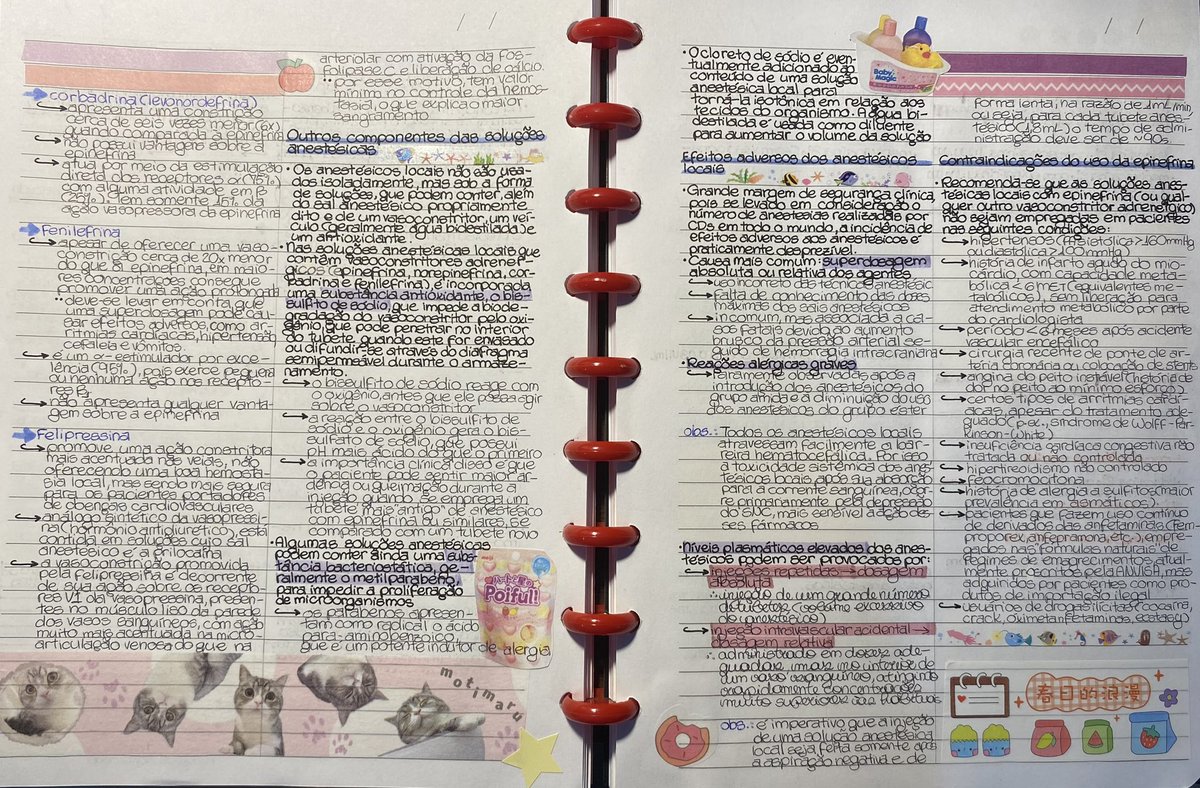 / /
corbadrina (levonordefrina)
apresenta uma constrição
cerca de seis vezes menor
quando comparada à epinefrina
não possui vantagens sobre a
epinefrina
atua por meio da estimulação
direta dos receptores α (75%),
com alguma atividade em β
(25%). Tem somente 15% da
ação vasopressora da epinefrina
Fenilefrina
apesar de oferecer uma vaso-
constrição cerca de 20x menor
do que a epinefrina, em maio-
res concentrações consegue
promover uma ação prolongada
∵ deve-se levar em conta que
uma superdosagem pode cau-
sar efeitos adversos, como ar-
ritmias cardíacas, hipertensão,
cefaleia e vômitos.
é um α-estimulador por exce-
lência (95%), pois exerce pequena
ou nenhuma ação nos recepto-
res β
não apresenta qualquer vanta-
gem sobre a epinefrina
Felipressina
promove uma ação constritora
mais acentuada nas veias, não
oferecendo uma boa hemosta-
sia local, mas sendo mais segura
para os pacientes portadores
de doenças cardiovasculares
análogo sintético da vasopressi-
na (hormônio antidiurético), está
contida em soluções cujo sal
anestésico é a prilocaína
a vasoconstrição promovida
pela felipressina é decorrente
de sua ação sobre os recepto-
res V1 da vasopressina, presen-
tes no músculo liso da parede
dos vasos sanguíneos, com ação
muito mais acentuada na micro-
articulação venosa do que na
arteriolar com ativação da fos-
folipase C e liberação de cálcio.
∵ por esse motivo, tem valor
mínimo no controle da hemos-
tasia, o que explica o maior
sangramento
Outros componentes das soluções
anestésicas
• Os anestésicos locais não são usa-
dos isoladamente, mas sob a forma
de soluções, que podem conter, além
do sal anestésico propriamente
dito e de um vasoconstritor, um veí-
culo (geralmente água bidestilada) e
um antioxidante.
• Nas soluções anestésicas locais que
contêm vasoconstritores adrenér-
gicos (epinefrina, norepinefrina, cor-
badrina e fenilefrina), é incorporada
uma substância antioxidante, o bis-
sulfito de sódio, que impede a biode-
gradação do vasoconstritor pelo oxi-
gênio, que pode penetrar no interior
do tubete, quando este for envasado
ou difundir-se através do diafragma
semipermeável durante o armaze-
namento.
o bissulfito de sódio reage com
o oxigênio, antes que ele possa agir
sobre o vasoconstritor
a reação entre o bissulfito de
sódio e o oxigênio gera o bis-
sulfato de sódio, que possui
pH mais ácido do que o primeiro
a importância clínica disso é que
o paciente pode sentir maior ar-
dência ou queimação durante a
injeção quando se emprega um
tubete mais "antigo" de anestésico
com epinefrina ou similares, se
comparado com um tubete novo
• Algumas soluções anestésicas
podem conter ainda uma subs-
tância bacteriostática, ge-
ralmente o metilparabeno,
para impedir a proliferação
de microorganismos
os parabenos apresen-
tam como radical o ácido
para-aminobenzoico,
que é um potente indutor de alergia
meiji
Poiful!
motimaru
/ /
• O cloreto de sódio é even-
tualmente adicionado ao
conteúdo de uma solução
anestésica local para
torná-la isotônica em relação aos
tecidos do organismo. A água bi-
destilada é usada como diluente
para aumentar o volume da solução
Baby Magic
Efeitos adversos dos anestésicos
locais
• Grande margem de segurança clínica,
pois se levado em consideração o
número de anestesias realizadas por
CDs em todo o mundo, a incidência de
efeitos adversos aos anestésicos é
praticamente desprezível.
• Causa mais comum: superdosagem
absoluta ou relativa dos agentes.
uso incorreto das técnicas anestésic
falta de conhecimento das doses
máximas dos sais anestésicos
incomum, mas associada a ca-
sos fatais devido ao aumento
brusco da pressão arterial se-
guido de hemorragia intracraniana
• Reações alérgicas graves
raramente observados após a
introdução dos anestésicos do
grupo amida e a diminuição do uso
dos anestésicos do grupo éster
obs.: Todos os anestésicos locais
atravessam facilmente a bar-
reira hematocefálica. Por isso
a toxicidade sistêmica dos anes-
tésicos locais após sua absorção
para a corrente sanguínea, ocor-
re primariamente pela depressão
do SNC, mais sensível à ação des-
ses fármacos
• Níveis plasmáticos elevados dos anes-
tésicos podem ser provocados por:
injeções repetidas → dosagem
absoluta
∴ injeção de um grande número
de tubetes (volume excessivo
de anestésico)
injeção intravascular acidental →
dosagem relativa
∴ administrado em dose ade-
quada, mas no interior de
um vaso sanguíneo, atingindo
rapidamente concentração
muito superior aos habituais
obs.: é imperativo que a injeção
de uma solução anestésica
local seja feita somente após
a aspiração negativa e de
forma lenta, na razão de 1mL/min
ou seja, para cada tubete anes-
tésico (1,8mL) o tempo de admi-
nistração deve ser de ~90s.
Contraindicações do uso da epinefrina
• Recomenda-se que as soluções anes-
tésicas locais com epinefrina (ou qual-
quer outro vasoconstritor adrenérgico)
não sejam empregadas em pacientes
nas seguintes condições:
hipertensos (PA sistólica >160mmHg
ou diastólica >100mmHg)
história de infarto agudo do mio-
cárdio, com capacidade meta-
bólica <6 MET (equivalentes me-
tabólicos), sem liberação para
atendimento metabólico por
parte do cardiologista
período <6 meses após acidente
vascular encefálico
cirurgia recente de ponte de ar-
téria coronária ou colocação de stents
angina do peito instável (história de
dor no peito ao mínimo esforço)
certos tipos de arritmias cardí-
acas, apesar do tratamento ade-
quado (p.ex., síndrome de Wolff-Par-
kinson-White)
insuficiência cardíaca congestiva não
tratada ou não controlada
hipertireoidismo não controlado
feocromocitona
história de alergia a sulfitos (maior
prevalência em asmáticos)
pacientes que fazem uso contínuo
de derivados das anfetaminas (fem
proporex, anfepramona, etc.), empre-
gados nas fórmulas naturais de
regimes de emagrecimentos atual-
mente proscritos pela ANVISA, mas
adquiridos por pacientes como pro-
dutos de importação ilegal
usuários de drogas ilícitas (cocaína,
crack, oximetanfetaminas, ecstasy)
春日的浪漫